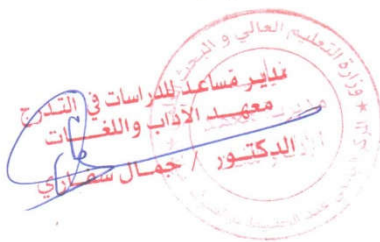 وزارة التعليم العالي و البحث
مدير مساعد للدراسات في التدرج
معهد الآداب واللغات
الدكتور / جمال سفاري